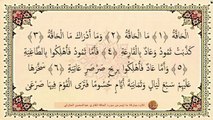 الْحَاقَّةُ ﴿١﴾ مَا الْحَاقَّةُ ﴿٢﴾ وَمَا أَدْرَاكَ مَا الْحَاقَّةُ ﴿٣﴾
كَذَّبَتْ ثَمُودُ وَعَادٌ بِالْقَارِعَةِ ﴿٤﴾ فَأَمَّا ثَمُودُ فَأُهْلِكُوا بِالطَّاغِيَةِ
﴿٥﴾ وَأَمَّا عَادٌ فَأُهْلِكُوا بِرِيحٍ صَرْصَرٍ عَاتِيَةٍ ﴿٦﴾ سَخَّرَهَا
عَلَيْهِمْ سَبْعَ لَيَالٍ وَثَمَانِيَةَ أَيَّامٍ حُسُومًا فَتَرَى الْقَوْمَ فِيهَا صَرْعَى